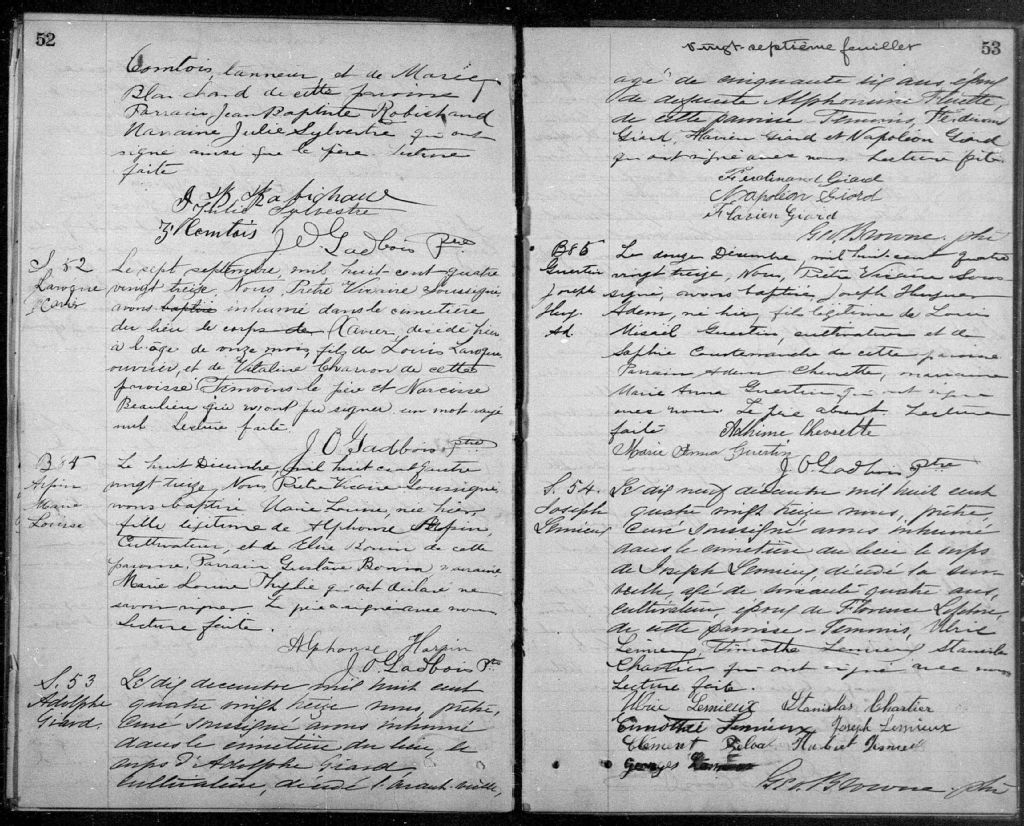 52
Comtois, tanneur, et de Marie
Blanchard de cette paroisse
Parrain Jean Baptiste Robichaud
Marraine Julie Sylvestre qui ont
signé ainsi que le père. Lecture
faite
J. B. Robichaud
Julie Sylvestre
Comtois
J O Gadbois Ptre
S. 52
Larocque
Le sept septembre, mil huit-cent-quatre
vingt treize, Nous, Prêtre Vicaire soussigné,
avons baptisé inhumé dans le cimetière
du lieu le corps de Xavier, décédé hier
à l'âge de onze mois, fils de Louis Larocque,
ouvrier, et de Vitaline Charron de cette
paroisse Témoins le père et Narcisse
Beaulieu qui n'ont pu signer un mot rayé
nul Lecture faite.
J. O. Gadbois ptre
B 84
Arpin
Marie
Louise
Le huit Décembre, mil huit cent quatre
vingt treize, Nous Prêtre Vicaire Soussigné,
avons baptisé Marie Louise, née hier,
fille légitime de Alphonse Arpin,
Cultivateur, et de Elise Bonin de cette
paroisse, Parrain Gustave Bonin marraine
Marie Louise qui ont déclaré ne
savoir signer. Le père a signé avec nous
Lecture faite.
Alphonse Harpin
J. O Gadbois Ptre
S. 53
Adolphe
Giard
Le dix decembre mil huit cent
quatre vingt treize nous, prêtre,
Curé soussigné avons inhumé
dans le cimetière du lieu, le
corps d'Adolphe Giard
cultivateur, décédé l'avant-veille,
vingt-septième feuillet
53
agé de cinquante six ans, époux
de defunte Alphonsine Fluette,
de cette paroisse Temoins, Ferdinand
Giard, Flavien Giard et Napoleon Giard
qui ont signé avec nous Lecture faite
Ferdinand Giard
Napoléon Giard
Flavien Giard
Geo. Browne. ptre
B 85
Guertin
Joseph
Hug.
Ad.
Le douze Décembre, mil huit cent quatre
vingt treize, Nous, Prêtre Vicaire Sous
signé, avons baptisé, Joseph Hugues
Adem, né hier, fils légitime de Louis
Misaël Guertin, cultivateur et de
Sophie Courtemanche de cette paroisse
Parrain Adem Chevrette, marraine
Marie Anna Guertin qui ont signé
avec nous. Le père absent. Lecture
faite Adhime Chevrette
Marie Anna Guertin
J O Gadbois Ptre
S. 54.
Joseph
Lemieux
Le dix neuf decembre mil huit cent
quatre vingt treize nous, prêtre,
Curé soussigné avons inhumé
dans le cimetière du lieu le corps
de Joseph Lemieux, décédé la sur-
veille, agé de soixante quatre ans,
cultivateur, époux de Florence
de cette paroisse - Temoins, Ulric
Lemieux, Timothé Lemieux Stanislas
Chartier qui ont signé avec nous
Lecture faite.
Lemieux Stanislas Chartier
Timothée Lemieux Joseph Lemieux
Clément
Georges
Geo. Browne. ptre